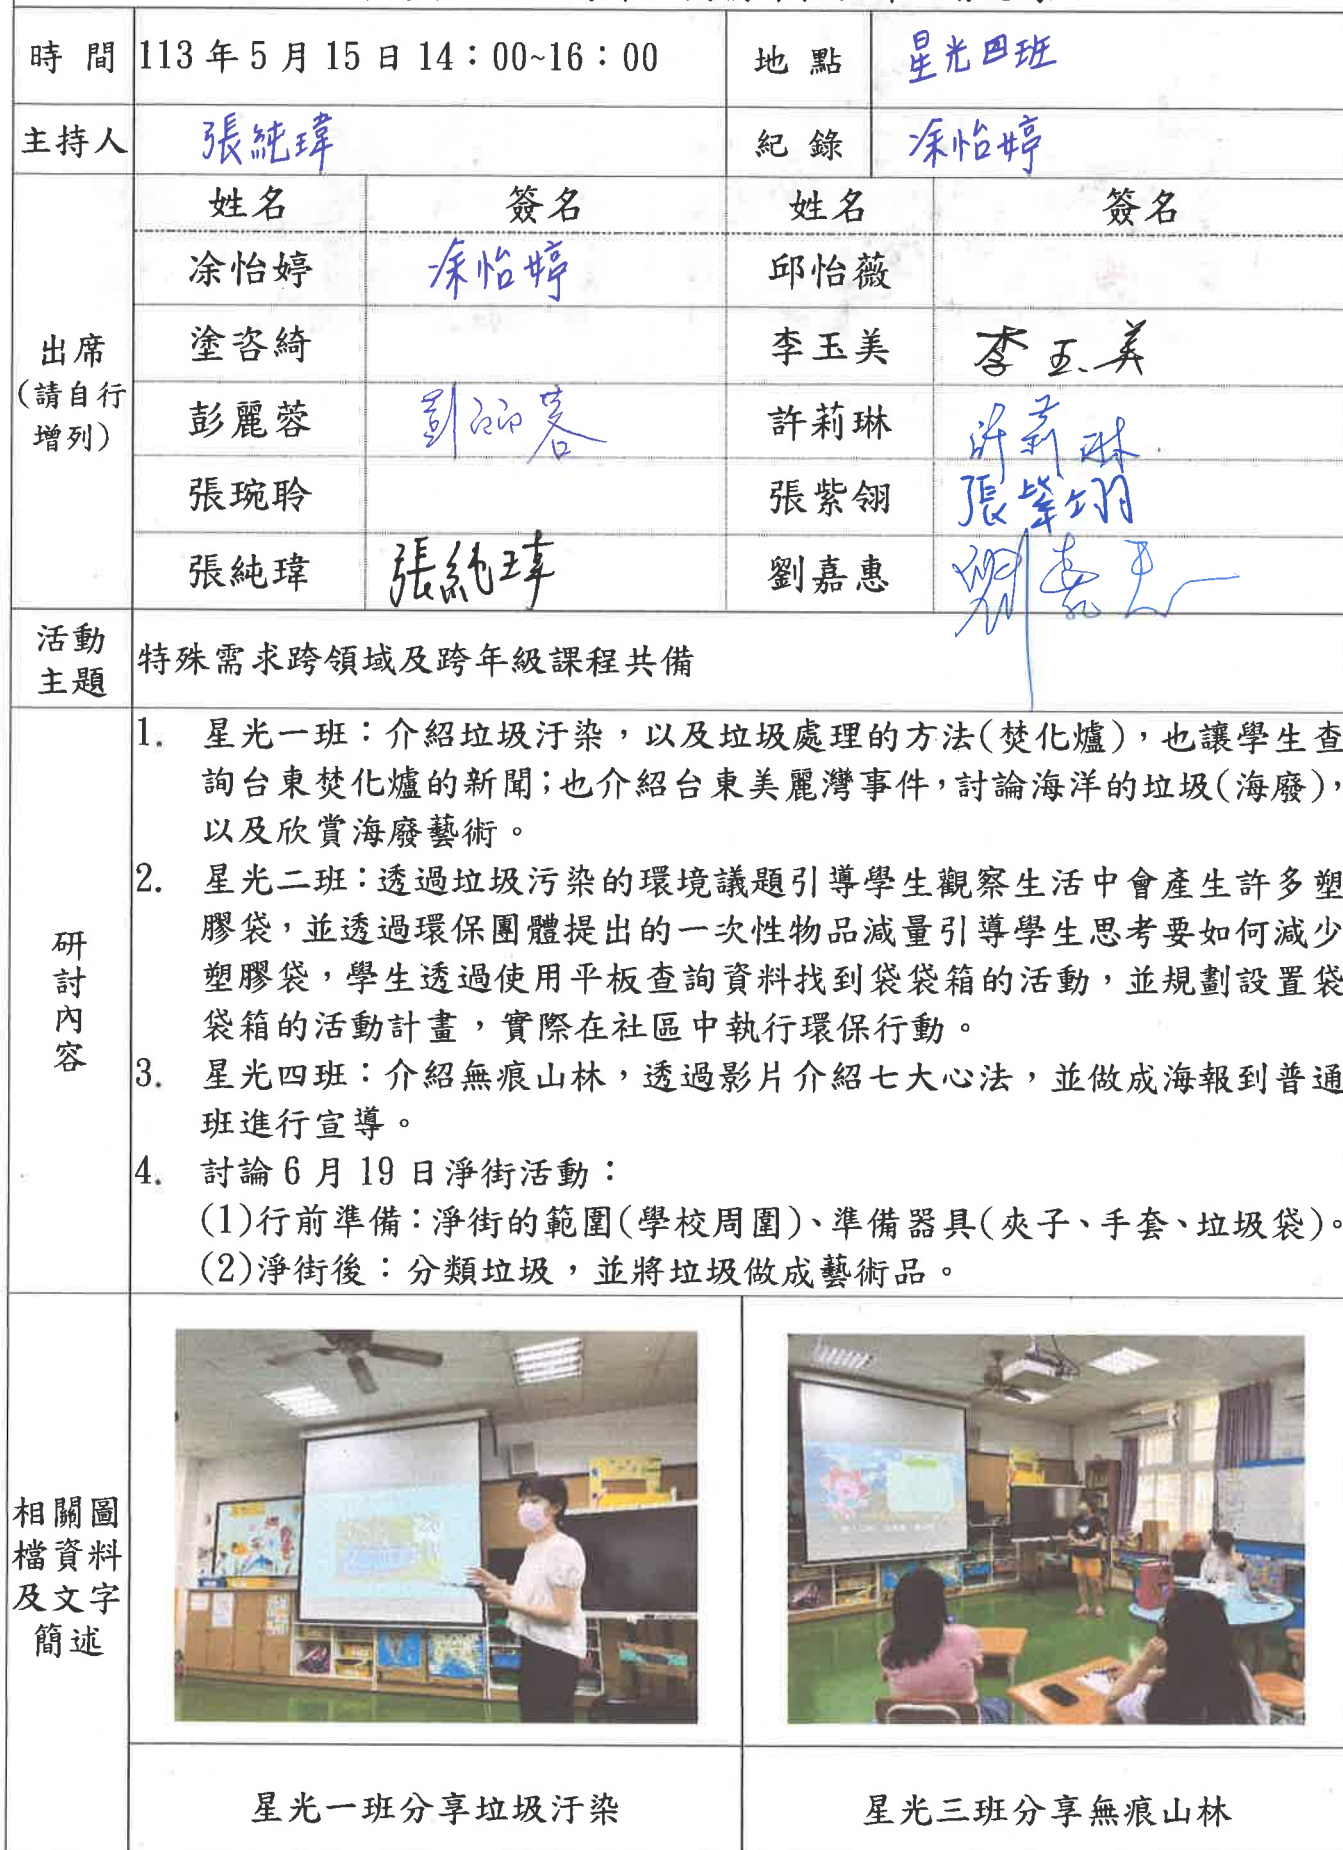 時 間 113年5月15日14：00~16：00 地 點 星光四班
主持人 張純瑋 紀 錄 凃怡婷
姓名 簽名 姓名 簽名
凃怡婷 凃怡婷 邱怡薇
塗咨綺 李玉美 李玉美
彭麗蓉 彭麗蓉 許莉琳 許莉琳
張琬聆 張紫翎 張紫翎
張純瑋 張純瑋 劉嘉惠 劉嘉惠
出席
(請自行
增列)
活動
主題
特殊需求跨領域及跨年級課程共備
研
討
內
容
1. 星光一班：介紹垃圾汙染，以及垃圾處理的方法(焚化爐)，也讓學生查
詢台東焚化爐的新聞；也介紹台東美麗灣事件，討論海洋的垃圾(海廢)，
以及欣賞海廢藝術。
2. 星光二班：透過垃圾污染的環境議題引導學生觀察生活中會產生許多塑
膠袋，並透過環保團體提出的一次性物品減量引導學生思考要如何減少
塑膠袋，學生透過使用平板查詢資料找到袋袋箱的活動，並規劃設置袋
袋箱的活動計畫，實際在社區中執行環保行動。
3. 星光四班：介紹無痕山林，透過影片介紹七大心法，並做成海報到普通
班進行宣導。
4. 討論6月19日淨街活動：
(1)行前準備：淨街的範圍(學校周圍)、準備器具(夾子、手套、垃圾袋)。
(2)淨街後：分類垃圾，並將垃圾做成藝術品。
相關圖
檔資料
及文字
簡述
星光一班分享垃圾汙染 星光三班分享無痕山林